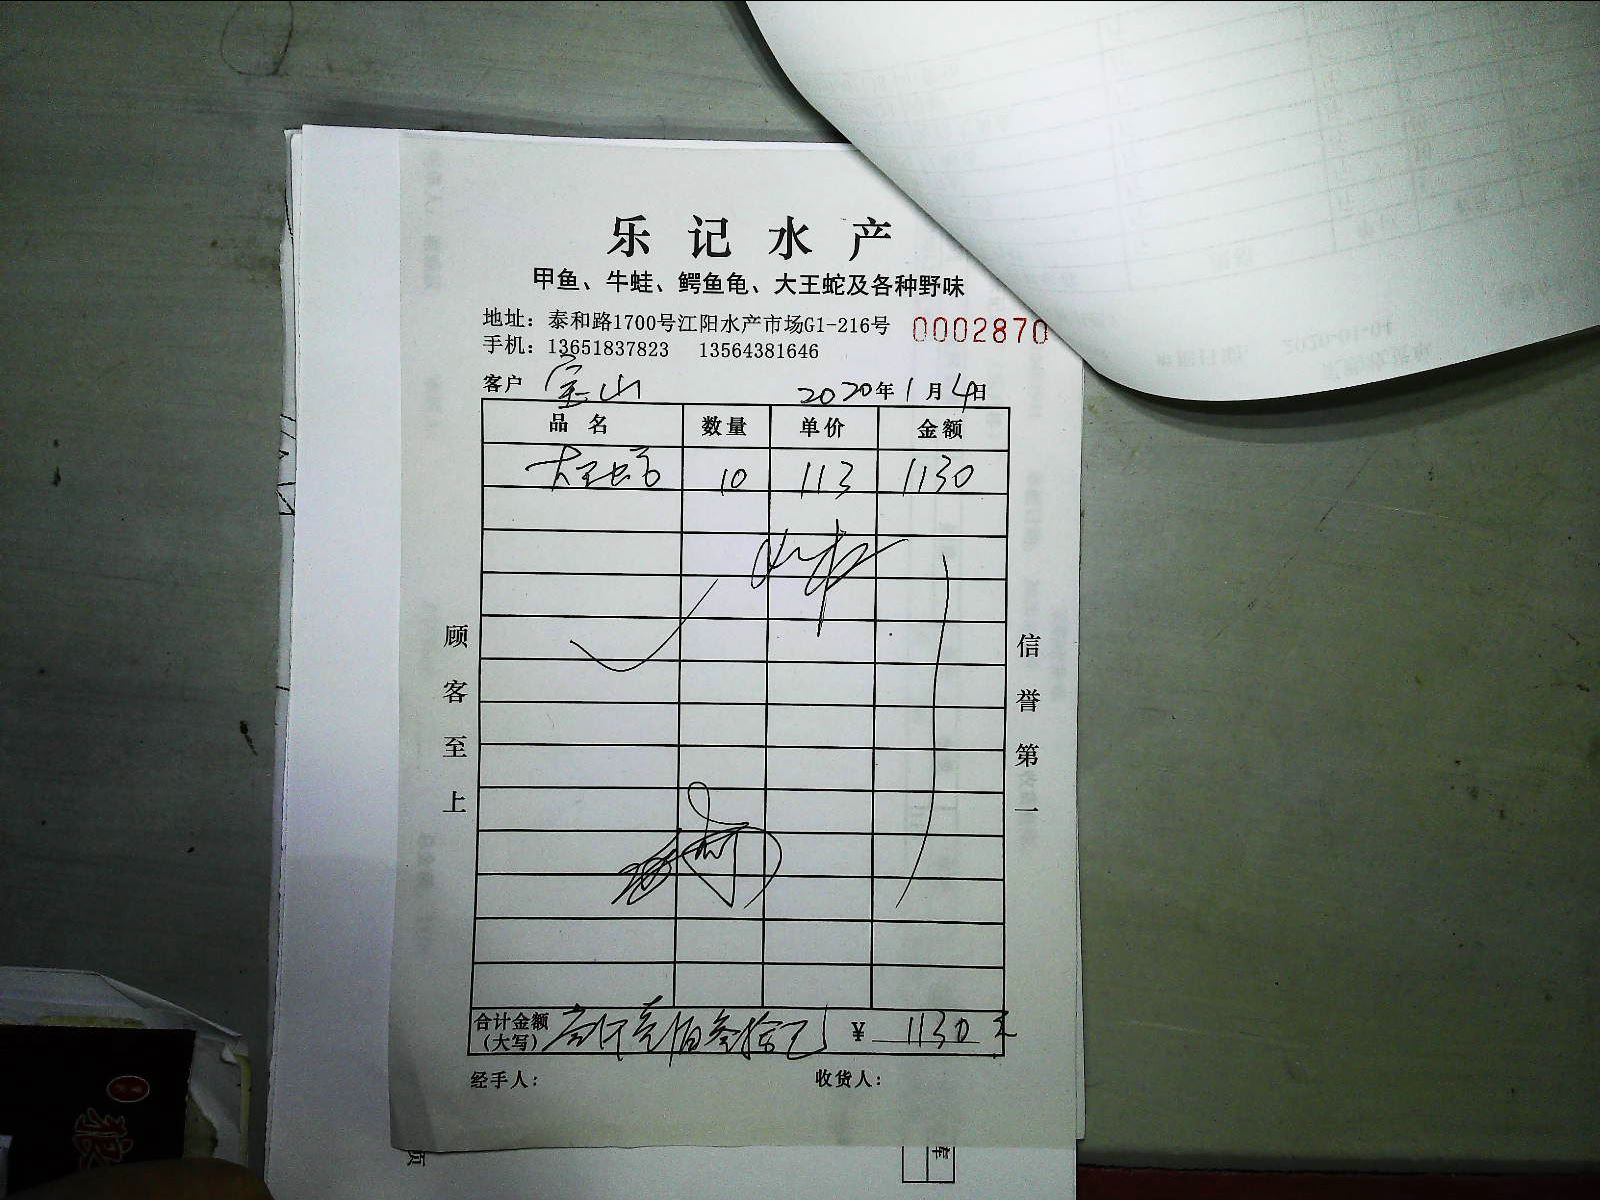 乐记水产
甲鱼、牛蛙、鳄鱼龟、大王蛇及各种野味
地址：泰和路1700号江阳水产市场G1-216号 0002870
手机：13651837823 13564381646
客户 宝山 2020年1月4日
品名 数量 单价 金额
大王蛇 10 113 1130
顾客至上
信誉第一
合计金额（大写） 壹仟壹佰叁拾元 ¥ 1130元
经手人： 收货人：